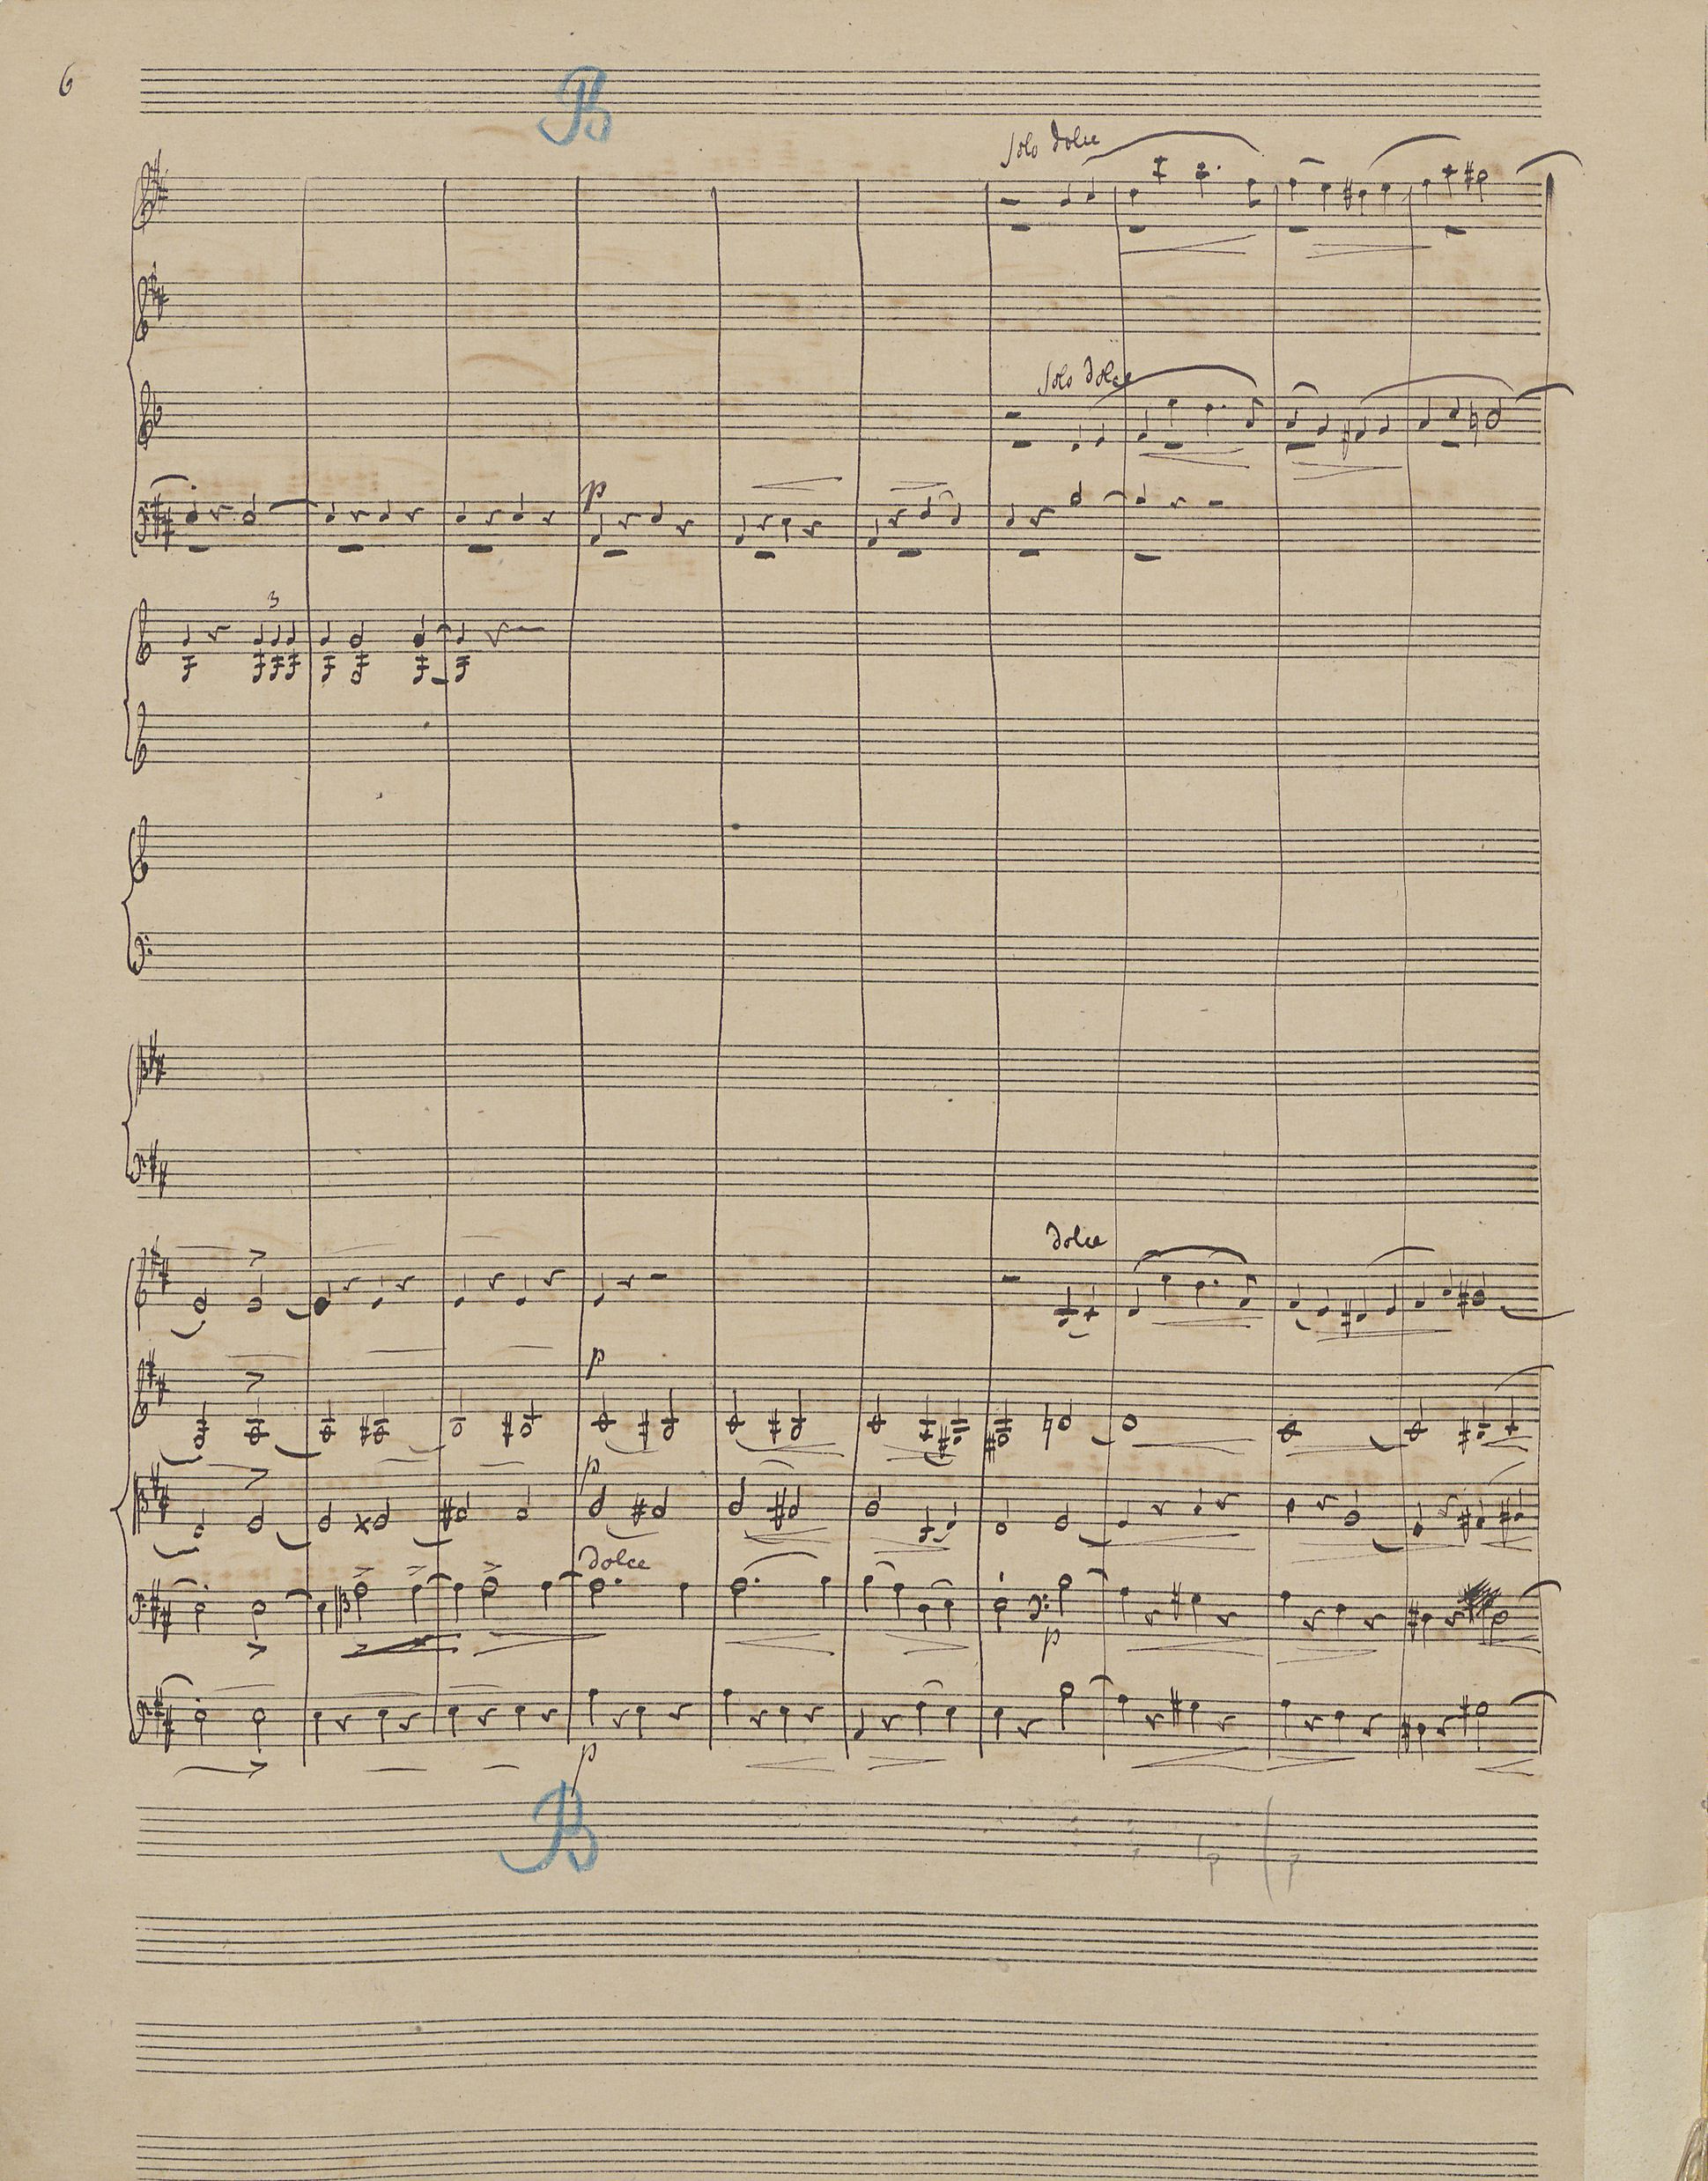 6
B
Solo dolce
Solo dolce
p
3
dolce
p
p
dolce
p
p
B